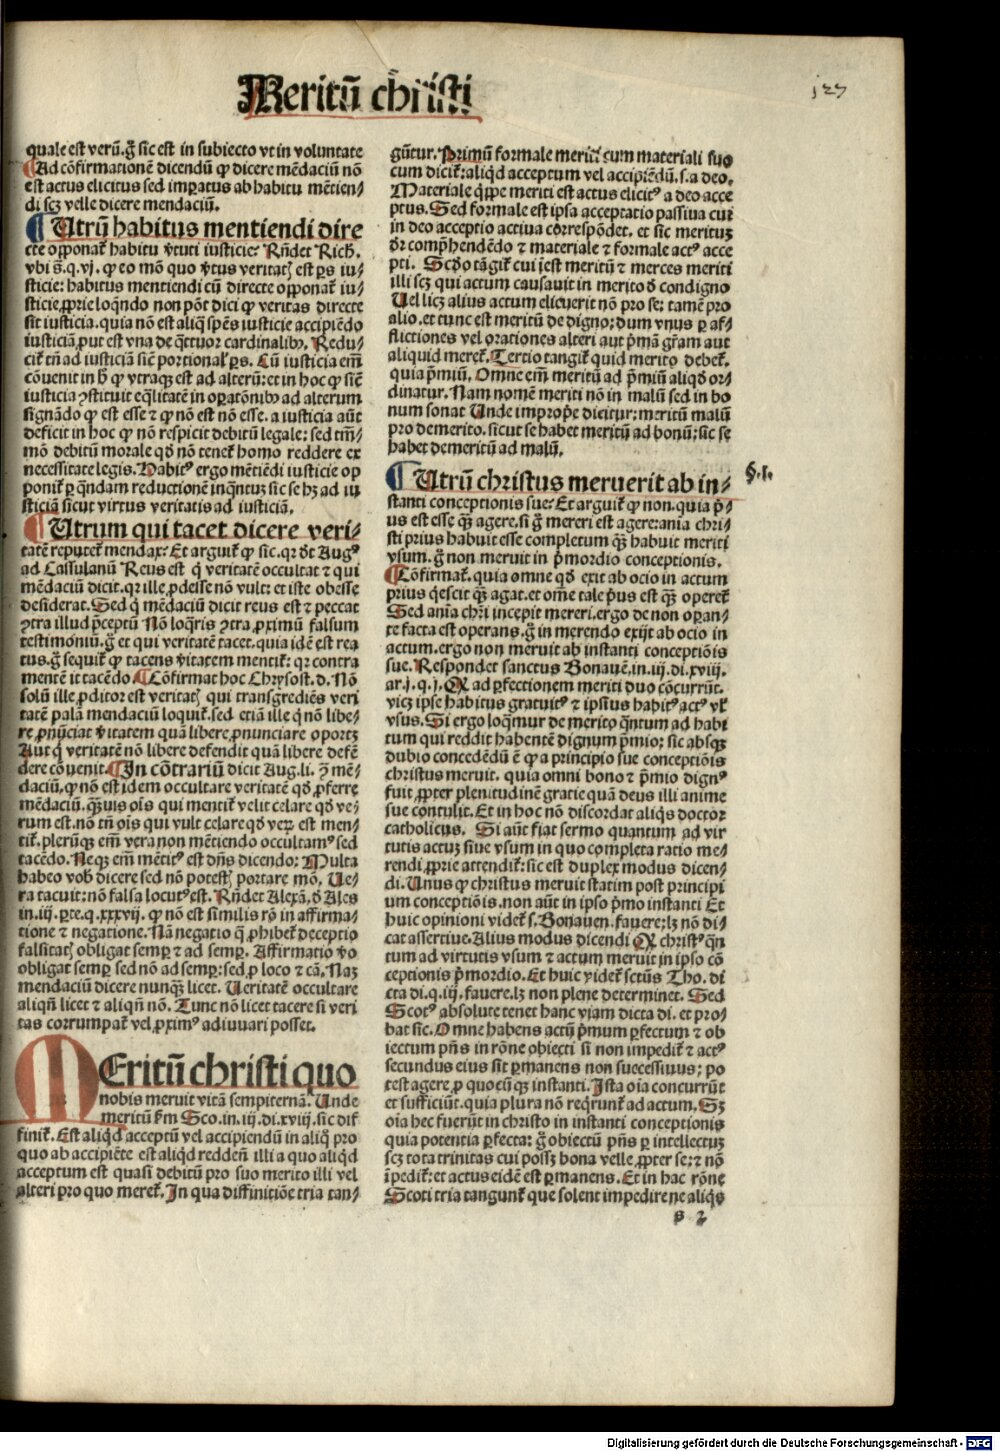 Meritū christi
127
quale est verū. g̃ sic est in subiecto vt in voluntate
¶Ad cōfirmationē dicendū ꝙ dicere mēdaciū nō
est actus elicitus sed imꝑatus ab habitu mētien⸗
di scꝫ velle dicere mendaciū.
¶Utrū habitus mentiendi dire
cte opponat habitu v̓tuti iusticie? Rn̄det Rich.
vbi s̄.q.vj. ꝙ eo mō quo v̓tus veritatꝭ est ꝑs iu⸗
sticie: habitus mentiendi cū directe opponat iu⸗
sticie, ꝓprie loqn̄do non pōt dici ꝙ veritas directe
sit iusticia. quia nō est aliq̄ spēs iusticie accipiēdo
iusticiā, ꝓut est vna de q̄ttuor cardinalibꝰ. Redu⸗
cit tn̄ ad iusticiā sic̄ portional' ꝑs. Cū iusticia em̄
cōuenit in h̄ ꝙ vtraqꝫ est ad alterū: et in hoc ꝙ sic̄
iusticia ꝯstituit eq̄litatē in oꝑatōnibꝰ ad alterum
signādo ꝙ est esse ⁊ ꝙ nō est nō esse. a iusticia aūt
deficit in hoc ꝙ nō respicit debitū legale: sed tm̄⸗
mō debitū morale qd̄ nō tenet homo reddere ex
necessitate legis. Habitꝰ ergo mētiēdi iusticie op
ponit ꝑ qn̄dam reductionē inqn̄tuꝫ sic se hꝫ ad iu
sticiā sicut virtus veritatis ad iusticiā.
¶Utrum qui tacet dicere veri⸗
tatē reputet mendax? Et arguit ꝙ sic. qꝛ d̄t Augꝰ
ad Cassulanū Reus est q̇ veritatē occultat ⁊ qui
mēdaciū dicit. qꝛ ille ꝓdesse nō vult: et iste obesse
desiderat. Sed q̇ mēdaciū dicit reus est ⁊ peccat
ꝯtra illud p̄ceptū Nō loq̄ris ꝯtra ꝓximū falsum
testimoniū. g̃ et qui veritatē tacet. quia idē est rea
tus. g̃ sequit ꝙ tacens v̓itatem mentit: qꝛ contra
mentē it tacēdo ¶Cōfirmat hoc Chrysost. d. Nō
solū ille ꝓditor est veritatꝭ qui transgrediēs veri
tatē palā mendaciū loquit. sed etiā ille q̇ nō libe⸗
re ꝓnūciat v̓itatem quā libere ꝓnunciare oportꝫ
Aut q̇ veritatē nō libere defendit quā libere defē
dere cōuenit. ¶In cōtrariū dicit Aug. li. ꝯ̄ mē⸗
daciū, ꝙ nō est idem occultare veritatē qd̄ ꝓferre
mēdaciū. qꝫuis oīs qui mentit velit celare qd̄ ve⸗
rum est. nō tn̄ oīs qui vult celare qd̄ verꝫ est men⸗
tit. plerūqꝫ em̄ vera non mētiendo occultamꝰ sed
tacēdo. Neqꝫ em̄ mētitꝰ est dn̄s dicendo: Multa
habeo vob̄ dicere sed nō potestꝭ portare mō. Ue⸗
ra tacuit: nō falsa locutꝰ est. Rn̄det Alexā. d̓ Ales
in.iij.ꝑte.q.xxxvij. ꝙ nō est similis rō in affirma⸗
tione ⁊ negatione. Nā negatio q̄ ꝓhibet deceptio
falsitatꝭ obligat semꝑ ⁊ ad semꝑ. Affirmatio v̓o
obligat semꝑ sed nō ad semꝑ: sed ꝓ loco ⁊ tꝑe. Naꝫ
mendaciū dicere nunqꝫ licet. Ueritatē occultare
aliqn̄ licet ⁊ aliqn̄ nō. Tunc nō licet tacere si veri
tas corrumpat vel ꝓximꝰ adiuuari posset.
MEritū christi quo
nobis meruit vitā sempiternā. Unde
meritū ẜm Sco.in.iij.di.xviij. sic dif
finit. Est aliqd̄ acceptū vel accipiendū in aliq̄ pro
quo ab accipiēte est aliqd̄ reddēn illi a quo aliqd̄
acceptum est quasi debitū pro suo merito illi vel
alteri pro quo meret. In qua diffinitiōe tria tan⸗
gūtur. Primū formale meriti cum materiali suo
cum dicit: aliqd̄ acceptum vel accipiēdū. s. a deo.
Materiale qͥppe meriti est actus elicitꝰ a deo acce
ptus. Sed formale est ipsa acceptatio passiua cui
in deo acceptio actiua correspōdet. et sic merituꝫ
d̄r comp̄hendēdo ⁊ materiale ⁊ formale actꝰ acce
pti. Scd̄o tāgit cui iest meritū ⁊ merces meriti
illi scꝫ qui actum causauit in merito d̓ condigno
Uel licꝫ alius actum elicuerit nō pro se: tamē pro
alio. et tunc est meritū de digno: dum vnus ꝑ af⸗
flictiones vel orationes alteri aut p̄mā gr̄am aut
aliquid meret. Tertio tangit quid merito debet.
quia p̄miū. Omne em̄ meritū ad p̄miū aliqd̄ or⸗
dinatur. Nam nomē meriti nō in malū sed in bo
num sonat Unde improp̄e dicitur: meritū malū
pro demerito. sicut se habet meritū ad bonū: sic se
habet demeritū ad malū.
¶Utrū christus meruerit ab in⸗
§.I.
stanti conceptionis sue? Et arguit ꝙ non. quia p̄⸗
us est esse qꝫ agere. si g̃ mereri est agere: aīa chri⸗
sti prius habuit esse completum qꝫ habuit meriti
vsum. g̃ non meruit in p̄mordio conceptionis.
¶Cōfirmat. quia omne qd̄ exit ab ocio in actum
prius qͥescit qꝫ agat. et om̄e tale p̄us est qꝫ operet
Sed aīa chr̄i incepit mereri. ergo de non oꝑan⸗
te facta est operans. g̃ in merendo exijt ab ocio in
actum. ergo non meruit ab instanti conceptiōis
sue. Respondet sanctus Bonauē.in.iij.di.xviij.
ar.j.q.j. Q ad ꝑfectionem meriti duo cōcurrūt.
vicꝫ ipse habitus gratuitꝰ ⁊ ipsius habitꝰ actꝰ vl'
vsus. Si ergo loqͥmur de merito qn̄tum ad habi
tum qui reddit habentē dignum p̄mio: sic absqꝫ
dubio concedēdū ē ꝙ a principio sue conceptiōis
christus meruit. quia omni bono ⁊ p̄mio dignꝰ
fuit ꝓpter plenitudinē gratie quā deus illi anime
sue contulit. Et in hoc nō discordat aliqͥs doctor
catholicus. Si aūt fiat sermo quantum ad vir
tutis actuꝫ siue vsum in quo completa ratio me⸗
rendi ꝓprie attendit: sic est duplex modus dicen⸗
di. Unus ꝙ christus meruit statim post principi
um conceptiōis. non aūt in ipso p̄mo instanti Et
huic opinioni videt s. Bonauen. fauere: lꝫ nō di⸗
cat assertiue. Alius modus dicendi Q christꝰ qn̄
tum ad virtutis vsum ⁊ actum meruit in ipso cō
ceptionis p̄mordio. Et huic videt sctūs Tho. di
cta di.q.iij. fauere. lꝫ non plene determinet. Sed
Scotꝰ absolute tenet hanc viam dicta di. et pro⸗
bat sic. Omne habens actū p̄mum ꝑfectum ⁊ ob
iectum p̄ns in rōne obiecti si non impedit ⁊ actꝰ
secundus eius sit ꝑmanens non successiuus; po
test agere ꝓ quocūqꝫ instanti. Ista oīa concurrūt
et sufficiūt. quia plura nō reqͥrunt ad actum. Sꝫ
oīa hec fuerūt in christo in instanti conceptionis
quia potentia ꝑfecta: g̃ obiectū p̄ns ꝑ intellectuꝫ
scꝫ tota trinitas cui possꝫ bona velle ꝓpter se: ⁊ nō
īpedit: et actus eidē est ꝑmanens. Et in hac rōne
Scoti tria tangunt que solent impedire ne aliqͥs
s 2
Digitalisierung gefördert durch die Deutsche Forschungsgemeinschaft - DFG